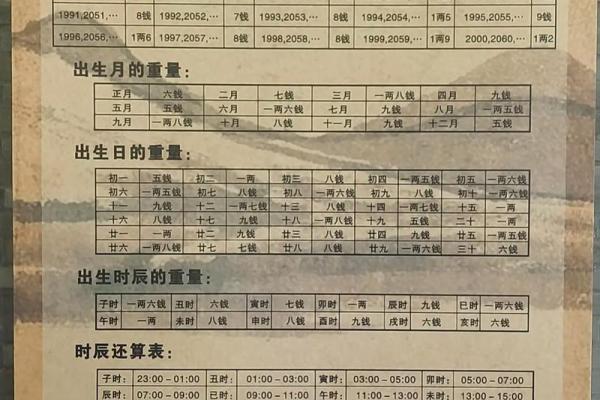 1991,2051,… 8钱 1992,2052,… 7钱 1993,2053,… 8钱 1994,2054,… 1两5 1995,2055,… 9钱
1996,2056,… 1两6 1997,2057,… 8钱 1998,2058,… 8钱 1999,2059,… 1两9 2000,2060,… 1两2
出生月的重量：
正月 六钱 二月 七钱 三月 一两八钱 四月 九钱
五月 五钱 六月 一两六钱 七月 九钱 八月 一两五钱
九月 一两八钱 十月 八钱 十一月 九钱 十二月 五钱
出生日的重量：
初一 五钱 初二 一两 初三 八钱 初四 一两五钱 初五 一两六钱
初六 一两五钱 初七 八钱 初八 一两六钱 初九 八钱 初十 一两六钱
十一 九钱 十二 一两七钱 十三 八钱 十四 一两七钱 十五 一两
十六 八钱 十七 九钱 十八 一两八钱 十九 五钱 二十 一两
廿一 一两 廿二 九钱 廿三 八钱 廿四 九钱 廿五 一两五钱
廿六 一两八钱 廿七 七钱 廿八 八钱 廿九 一两六钱 三十 六钱
出生时辰的重量：
子时 一两六钱 丑时 六钱 寅时 七钱 卯时 一两 辰时 九钱 巳时 一两六钱
午时 一两 未时 八钱 申时 八钱 酉时 九钱 戌时 六钱 亥时 六钱
时辰还算表：
子时： 23:00－01:00 丑时： 01:00－03:00 寅时： 03:00－05:00 卯时： 05:00－07:00
辰时： 07:00－09:00 巳时： 09:00－11:00 午时： 11:00－13:00 未时： 13:00－15:00